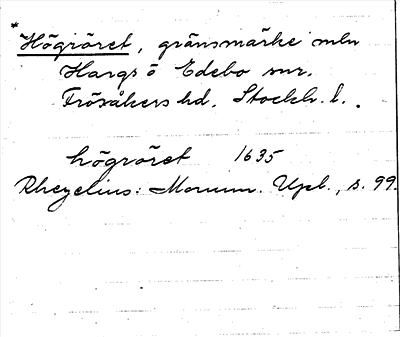 *
Högröret, gränsmärke mln
Hargs o Edebo snr.
Frösåkers hd. Stockh. l.
högröret 1635
Rhezelius: Monum. Upl., s. 99.